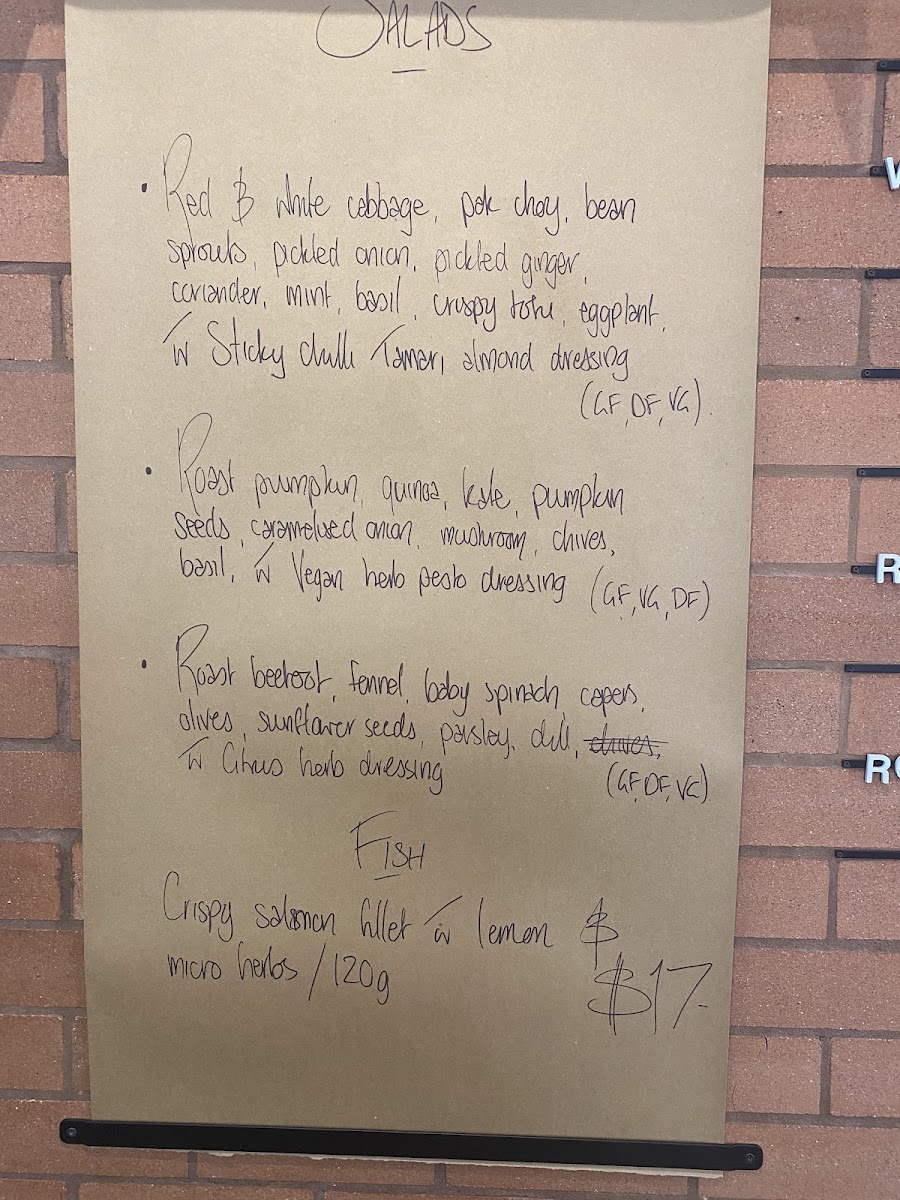 SALADS
• Red & white cabbage, pak choy, bean
sprouts, pickled onion, pickled ginger,
coriander, mint, basil, crispy tofu, eggplant,
w Sticky chilli Tamari almond dressing
(GF, DF, VG).
• Roast pumpkin, quinoa, kale, pumpkin
seeds, caramelised onion, mushroom, chives,
basil, w Vegan herb pesto dressing (GF, VG, DF)
• Roast beetroot, fennel, baby spinach, capers,
olives, sunflower seeds, parsley, dill, chives,
w Citrus herb dressing (GF, DF, VG)
FISH
Crispy salmon fillet w lemon &
micro herbs / 120g
$17-
W
R
RO